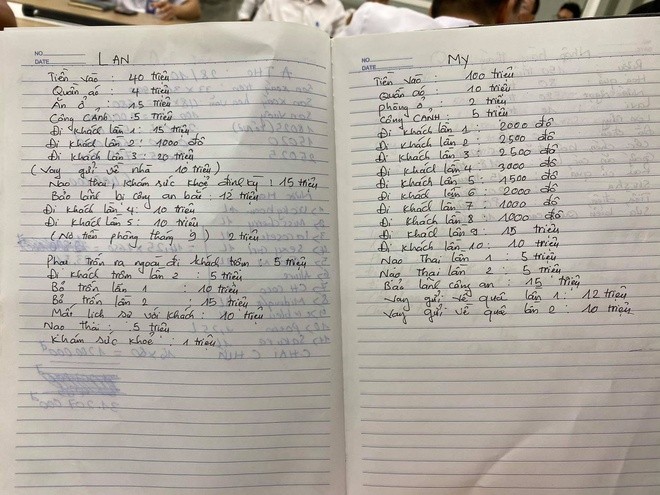 NO
DATE
LAN
Tiền vào : 40 triệu
Quần aó : 4 triệu
Ăn ở : 15 triệu
Công CẢNH : 5 triệu
Đi khách lần 1 : 15 triệu
Đi khách lần 2 : 1000 đô
Đi khách lần 3 : 20 triệu
( Vay gửi về nhà 10 triệu )
Nạo thai, Khám sức khoẻ định kỳ : 15 triệu
Bảo lãnh bị công an bắt : 12 triệu
Đi khách lần 4 : 10 triệu
Đi khách lần 5 : 10 triệu
( Nợ tiền phòng tháng 9 ) 2 triệu
Phạt trốn ra ngoài đi khách trộm : 5 triệu
Đi khách trộm lần 2 : 5 triệu
Bỏ trốn lần 1 : 10 triệu
Bỏ trốn lần 2 : 15 triệu
Mất lịch sự với khách : 10 triệu
Nạo thai : 5 triệu
Khám sức khoẻ : 1 triệu
NO
DATE
MY
Tiền vào : 100 triệu
Quần aó : 10 triệu
Phòng ở : 2 triệu
Công CẢNH : 5 triệu
Đi khách lần 1 : 2000 đô
Đi khách lần 2 : 2500 đô
Đi khách lần 3 : 2500 đô
Đi khách lần 4 : 3000 đô
Đi khách lần 5 : 1500 đô
Đi khách lần 6 : 2000 đô
Đi khách lần 7 : 1000 đô
Đi khách lần 8 : 1000 đô
Đi khách lần 9 : 15 triệu
Đi khách lần 10 : 10 triệu
Nạo Thai lần 1 : 5 triệu
Nạo Thai lần 2 : 5 triệu
Bảo lãnh công an : 15 triệu
Vay gửi về quê lần 1 : 12 triệu
Vay gửi về quê lần 2 : 10 triệu